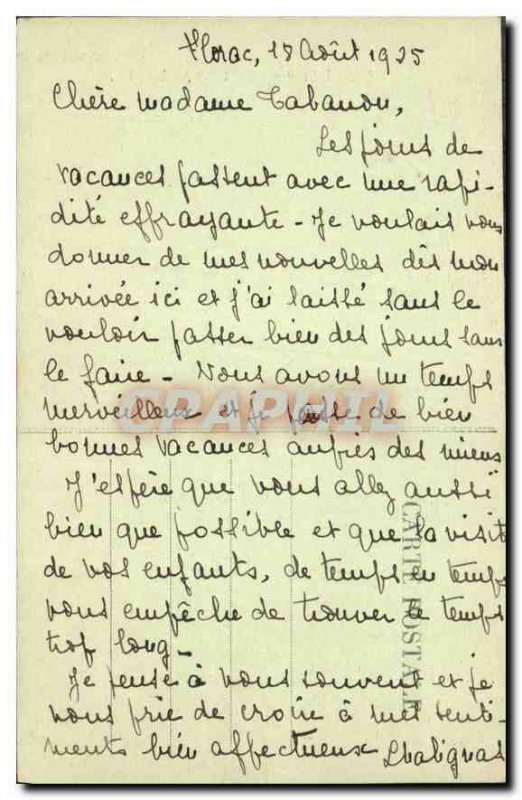 Florac, 18 Août 1925
Chère Madame Tabanon,
Les jours de
vacances passent avec une rapi-
dité effrayante - Je voulais vous
donner de mes nouvelles dès mon
arrivée ici et j'ai laissé sans le
vouloir passer bien des jours sans
le faire - Nous avons un temps
merveilleux et je passe de bien
bonnes vacances auprès des miens
J'espère que vous allez aussi
bien que possible et que la visite
de vos enfants, de temps en temps
vous empêche de trouver le temps
trop long -
Je pense à vous souvent et je
vous prie de croire à mes senti-
ments bien affectueux
CARTE POSTALE
CPAPHIL